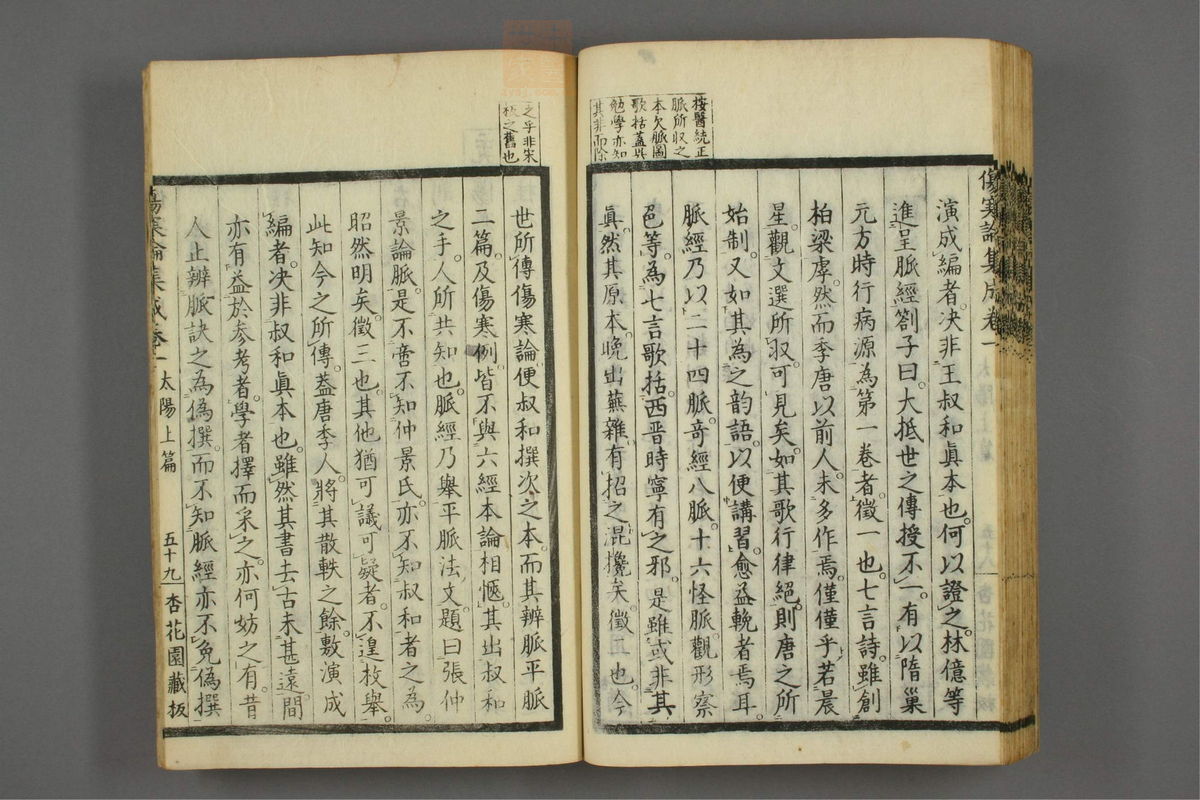 傷寒論集成卷一
演成編者决非王叔和眞本也何以證之林億等
進呈脈經劄子曰大抵世之傳授不一有以隋巢
元方時行病源為第一卷者徵一也七言詩雖創
柏梁虖然而季唐以前人未多作焉僅僅乎若晨
星觀文選所収可見矣如其歌行律絕則唐之所
始制又如其為之韵語以便講習愈益輓者焉耳
脈經乃以二十四脈奇經八脈十六怪脈觀形察
色等為七言歌括西晋時寧有之邪是雖或非其
眞然其原本晚出蕪雜有招之混攙矣徵二也今
桉醫統正
脈所収之
本欠脈圖
歌括蓋吳
勉學亦知
其非而除
之乎非宋
板之舊也
世所傳傷寒論便叔和撰次之本而其辨脈平脈
二篇及傷寒例皆不與六經本論相愜其出叔和
之手人所共知也脈經乃舉平脈法文題曰張仲
景論脈是不啻不知仲景氏亦不知叔和者之為
昭然明矣徵三也其他猶可議可疑者不遑枚舉
此知今之所傳蓋唐季人將其散軼之餘敷演成
編者决非叔和眞本也雖然其書去古未甚遠間
亦有益於参考者學者擇而采之亦何妨之有昔
人止辨脈訣之為偽撰而不知脈經亦不免偽撰
傷寒論集成卷一 太陽上篇 五十九 杏花園藏板